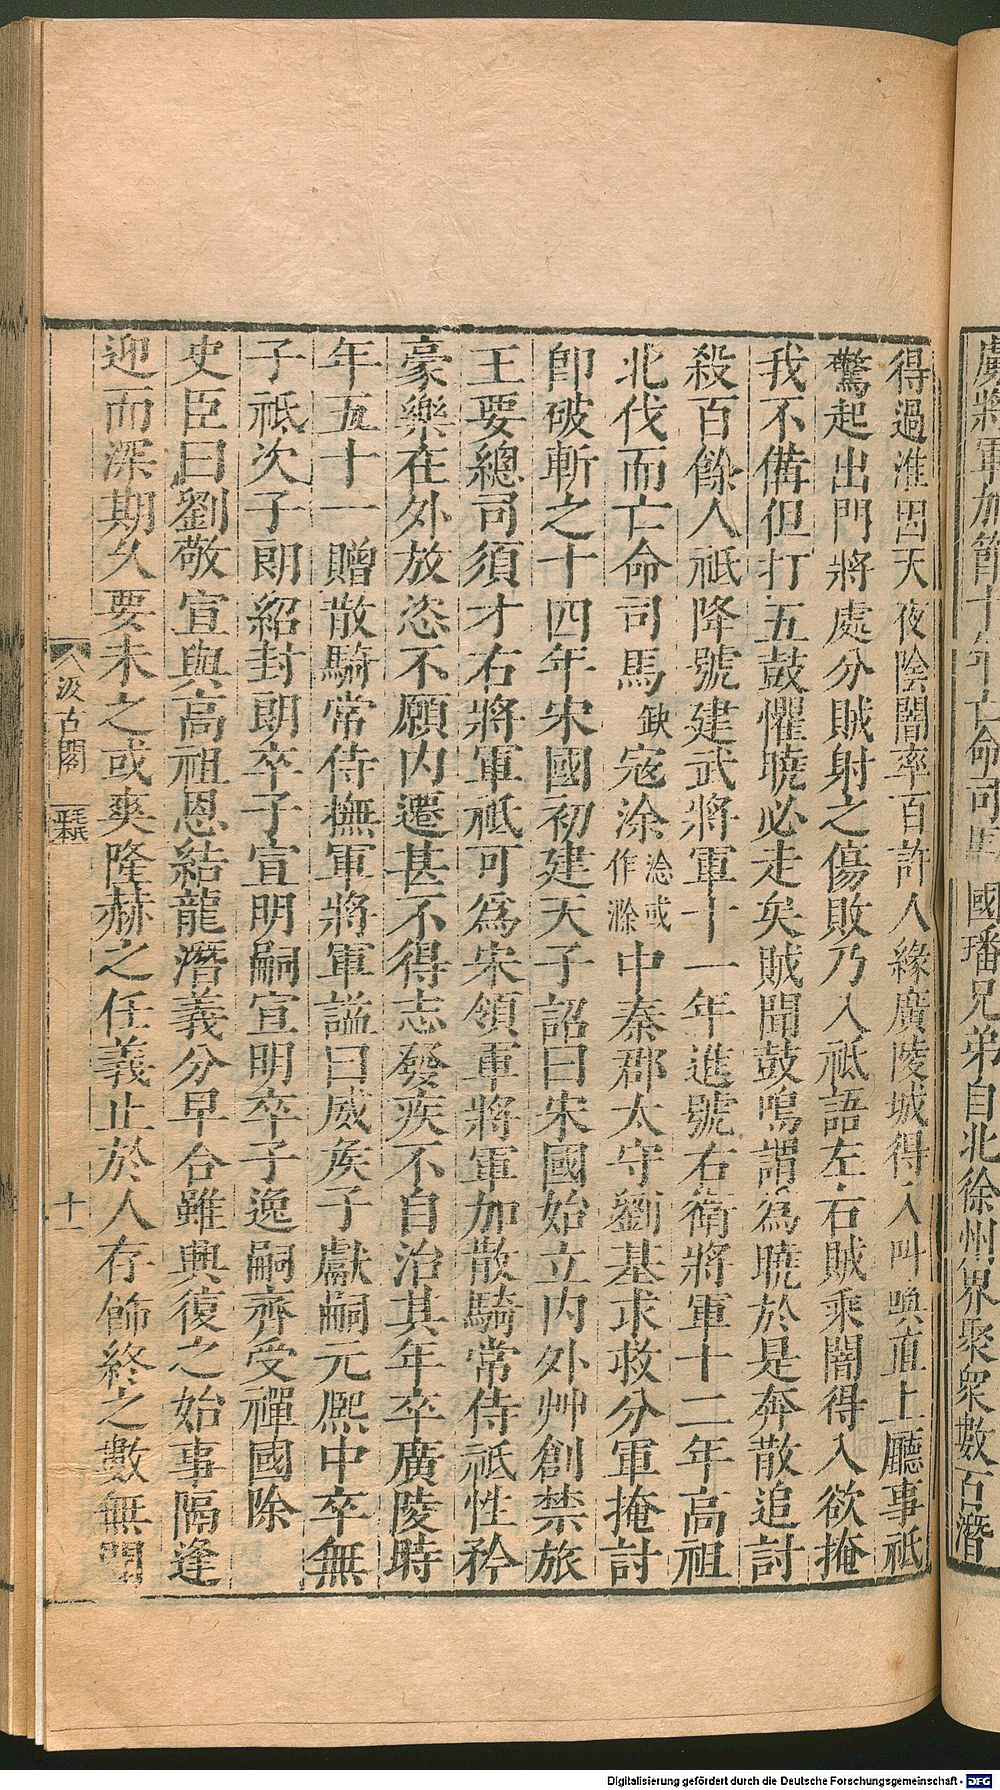 虜將軍加節十年亡命司馬國璠兄弟自北徐州界聚衆數百潛
得過淮因天夜陰闇率百許人緣廣陵城得入叫喚直上廳事祗
驚起出門將處分賊射之傷敗乃入祗語左右賊乘闇得入欲掩
我不備但打五鼓懼曉必走矣賊聞鼓鳴謂為曉於是奔散追討
殺百餘人祗降號建武將軍十一年進號右衛將軍十二年高祖
北伐而亡命司馬缺寇涂淰或作滁中秦郡太守劉基求救分軍掩討
卽破斬之十四年宋國初建天子詔曰宋國始立內外艸創禁旅
王要總司須才右將軍祗可為宋領軍將軍加散騎常侍祗性矜
豪樂在外放恣不願內遷甚不得志發疾不自治其年卒廣陵時
年五十一贈散騎常侍撫軍將軍諡曰威矦子獻嗣元熙中卒無
子祗次子朗紹封朗卒子宣明嗣宣明卒子逸嗣齊受禪國除
史臣曰劉敬宣與高祖恩結龍潛義分早合雖興復之始事隔逢
迎而深期久要未之或爽隆赫之任義止於人存飾終之數無聞
汲古閣
毛氏
十一
Digitalisierung gefördert durch die Deutsche Forschungsgemeinschaft - DFG